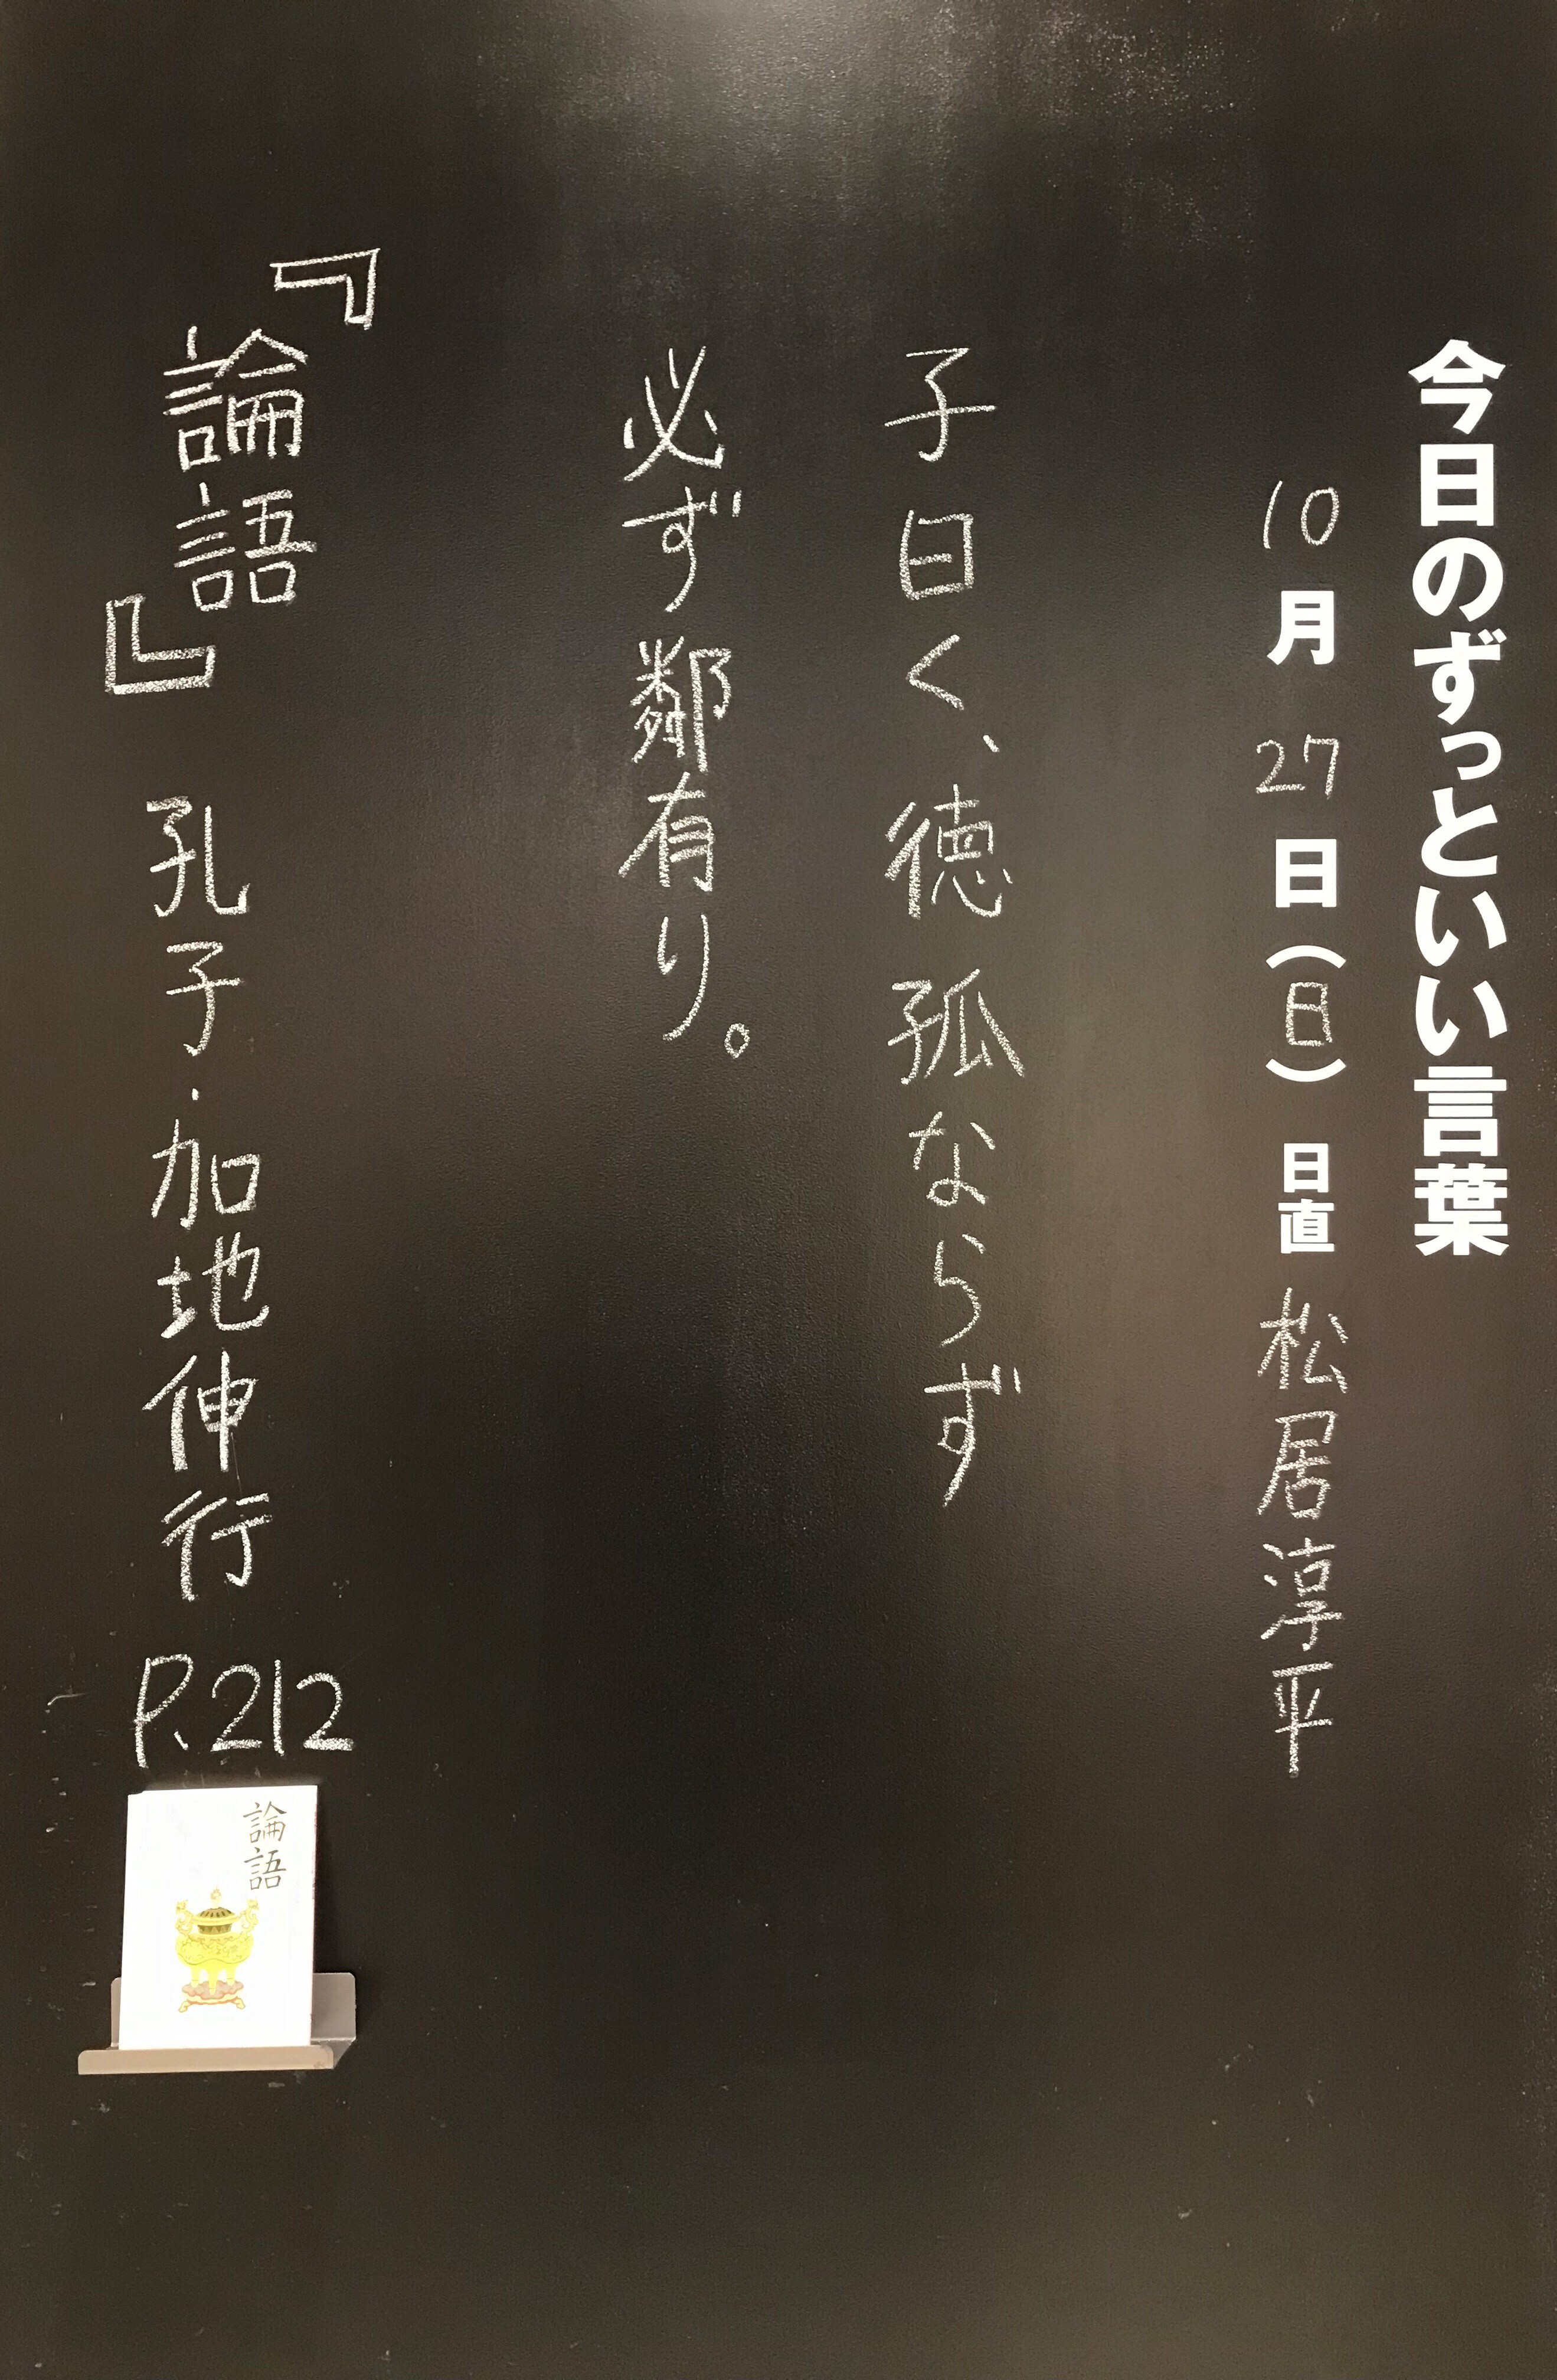 今日のずっといい言葉
10月27日(日) 日直 松居淳平
子曰く、徳孤ならず
必ず鄰有り。
『論語』 孔子・加地伸行 P.212
論語